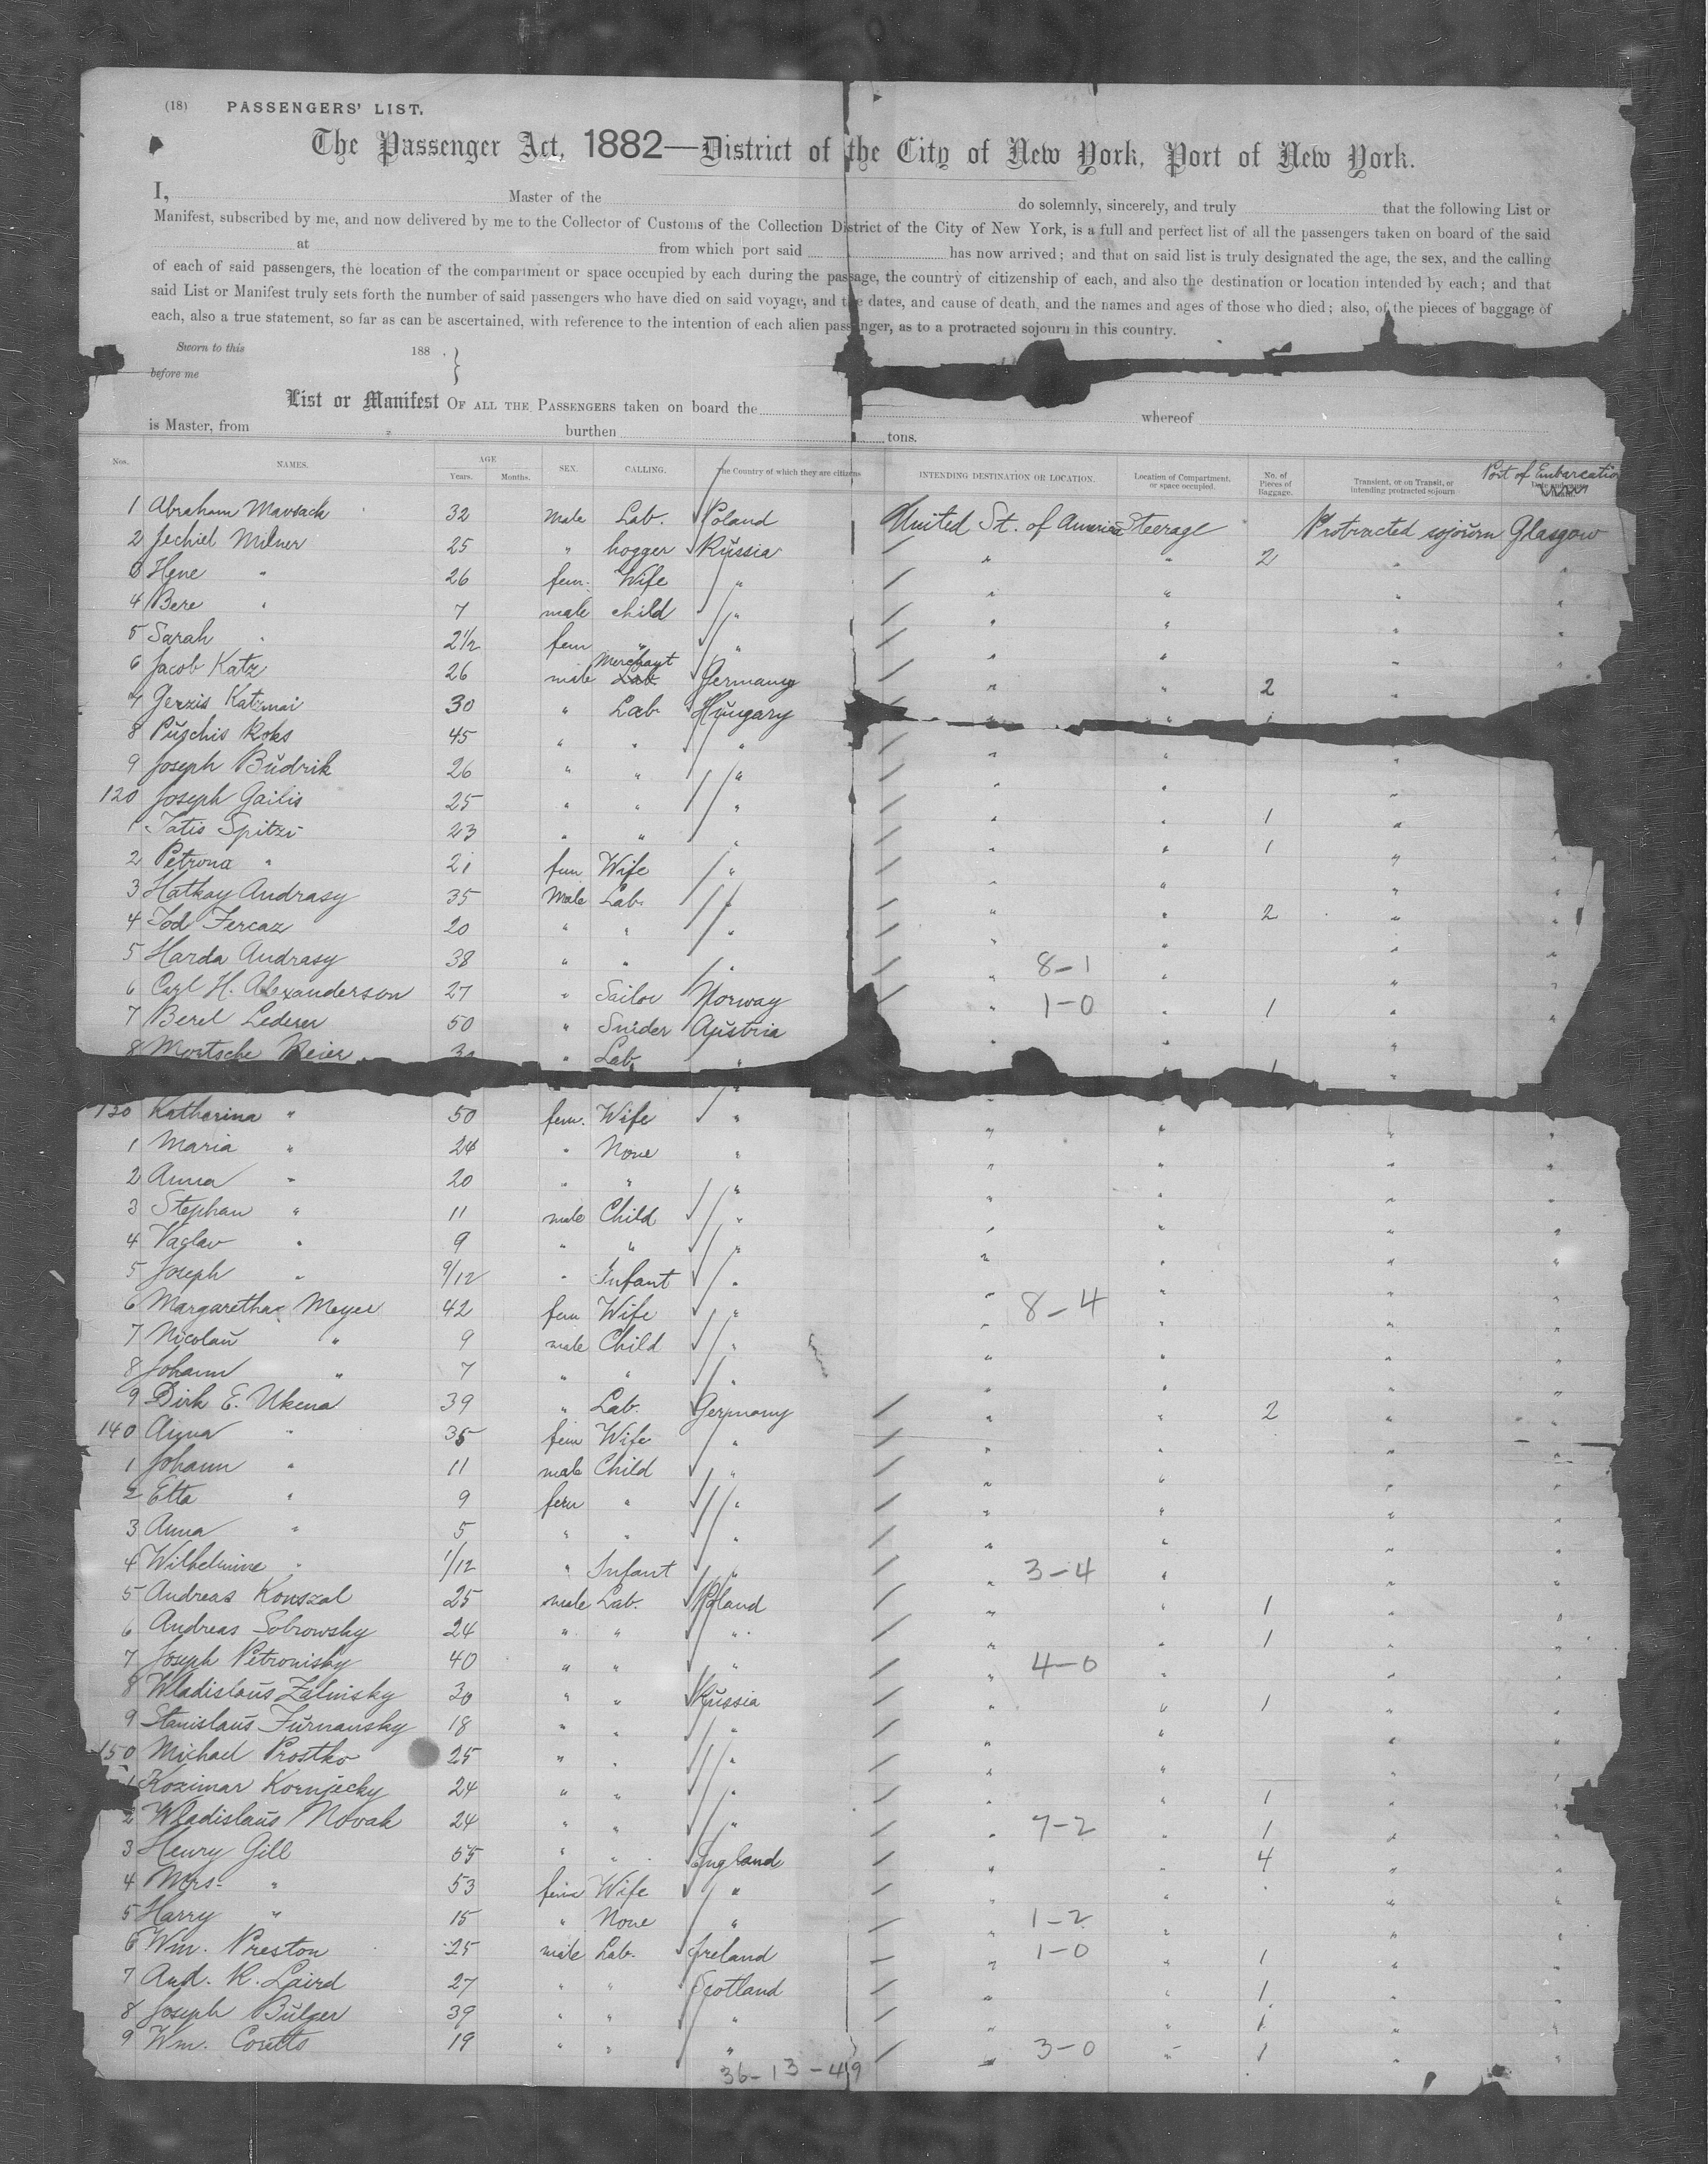 (18) PASSENGERS' LIST.
The Passenger Act, 1882—District of the City of New York, Port of New York.
I, Master of the do solemnly, sincerely, and truly that the following List or
Manifest, subscribed by me, and now delivered by me to the Collector of Customs of the Collection District of the City of New York, is a full and perfect list of all the passengers taken on board of the said
at from which port said has now arrived; and that on said list is truly designated the age, the sex, and the calling
of each of said passengers, the location of the compartment or space occupied by each during the passage, the country of citizenship of each, and also the destination or location intended by each; and that
said List or Manifest truly sets forth the number of said passengers who have died on said voyage, and the dates, and cause of death, and the names and ages of those who died; also, of the pieces of baggage of
each, also a true statement, so far as can be ascertained, with reference to the intention of each alien passenger, as to a protracted sojourn in this country.
Sworn to this 188 . }
before me
List or Manifest OF ALL THE PASSENGERS taken on board the whereof
is Master, from burthen tons.
Nos. NAMES. AGE Years. Months. SEX. CALLING. The Country of which they are citizens INTENDING DESTINATION OR LOCATION. Location of Compartment, or space occupied. No. of Pieces of Baggage. Transient, or on Transit, or intending protracted sojourn Port of Embarcation
1 Abraham Mavsack 32 Male Lab. Poland United St. of America Steerage Protracted sojourn Glasgow
2 Jechiel Milner 25 " hogger Russia " " 2 " "
3 Hene " 26 fem. Wife " " " " "
4 Bere " 7 male child " " " " "
5 Sarah " 2 1/2 fem " " " " " "
6 Jacob Katz 26 male Merchant Lab Germany " " 2 "
7 Gerzis Katzmai 30 " Lab Hungary
8 Puschis Roks 45 " " " " " "
9 Joseph Budrik 26 " " " " " "
120 Joseph Gailis 25 " " " " " 1 "
1 Tatis Spitzi 23 " " " " " 1 " "
2 Petrona " 21 fem Wife " " " " "
3 Hatkay Andrasy 35 Male Lab. " " " 2 " "
4 Tod Fercaz 20 " " " " " " "
5 Harda Andrasy 38 " " " " 8-1 " " "
6 Carl H. Alexanderson 27 " Sailor Norway " 1-0 " 1 " "
7 Berel Lederer 50 " Snider Austria " " "
8 Mortsche Meier " Lab " " 1 "
130 Katharina " 50 fem. Wife " " " " "
1 Maria " 24 " None " " " " "
2 Anna " 20 " " " " " " "
3 Stephan " 11 male Child " " " " "
4 Vaglav " 9 " " " " " " "
5 Joseph " 9/12 " Infant " " " " "
6 Margaretha Meyer 42 fem Wife " " 8-4 " " "
7 Nicolau " 9 male Child " " " " "
8 Johann " 7 " " " " " " "
9 Dirk E. Ukena 39 " Lab. Germany " " 2 " "
140 Anna " 35 fem Wife " " " " "
1 Johann " 11 male Child " " " " "
2 Etta " 9 fem " " " " " "
3 Anna " 5 " " " " " " "
4 Wilhelmine " 1/12 " Infant " " 3-4 " " "
5 Andreas Konszal 25 male Lab. Poland " " 1 " "
6 Andreas Sobrowsky 24 " " " " " 1 " "
7 Joseph Petronisky 40 " " " " 4-0 " " "
8 Wladislaus Zalinisky 30 " " Russia " " 1 " "
9 Stanislaus Furnansky 18 " " " " " " "
150 Michael Prostko 25 " " " " " " "
1 Kozimar Kornjecky 24 " " " " " 1 " "
2 Wladislaus Novak 24 " " " " 7-2 " 1 " "
3 Henry Gill 55 " " England " " 4 " "
4 Mrs. " 53 fem Wife " " " " "
5 Harry " 15 " None " " 1-2 " " "
6 Wm. Preston 25 male Lab. Ireland " 1-0 " 1 " "
7 And. R. Laird 27 " " Scotland " " 1 " "
8 Joseph Bulger 39 " " " " " 1 " "
9 Wm. Coretts 19 " " " " 3-0 " 1 " "
36-13-49